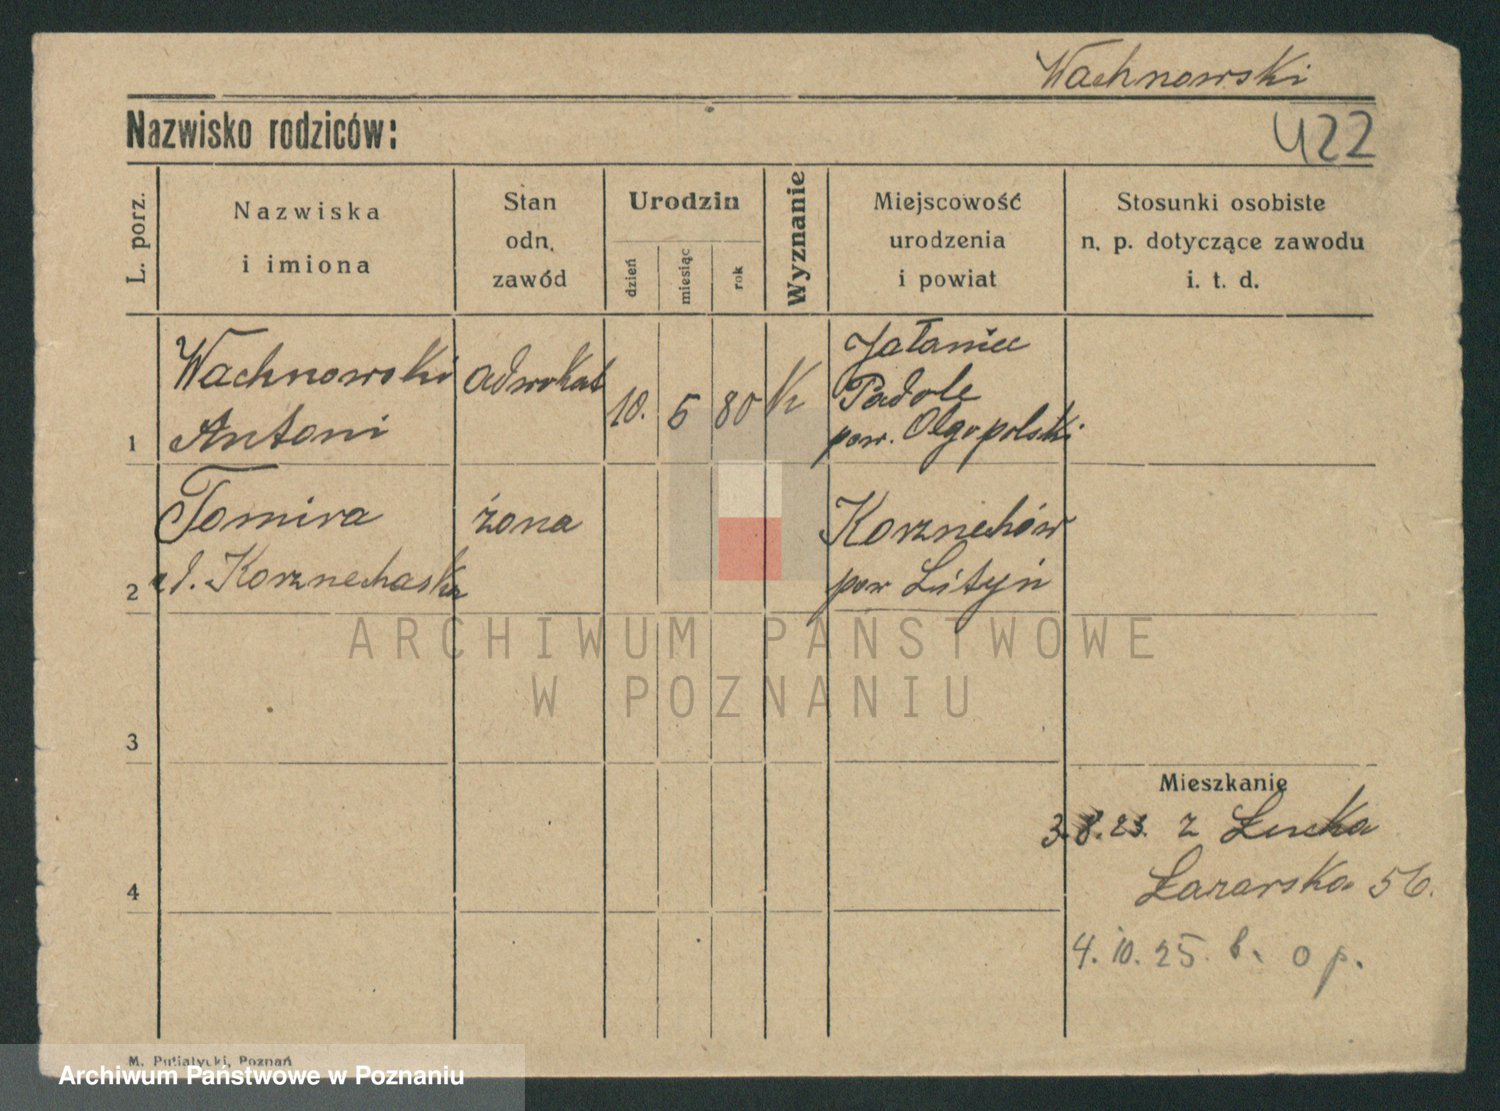 Wachnowski
Nazwisko rodziców:
422
L. porz.
Nazwiska
i imiona
Stan
odn.
zawód
Urodzin
dzień
miesiąc
rok
Wyznanie
Miejscowość
urodzenia
i powiat
Stosunki osobiste
n. p. dotyczące zawodu
i. t. d.
1
Wachnowski
Antoni
adwokat
10. 5 80
K
Podole
pow. Olgopolski
2
Tomira
żona
Korznechów
pow Lityń
3
Mieszkanie
3.8.23. z Łucka
Łazarska 56.
4
4.10.25.
M. Putiatycki, Poznań
ARCHIWUM PAŃSTWOWE
W POZNANIU
Archiwum Państwowe w Poznaniu